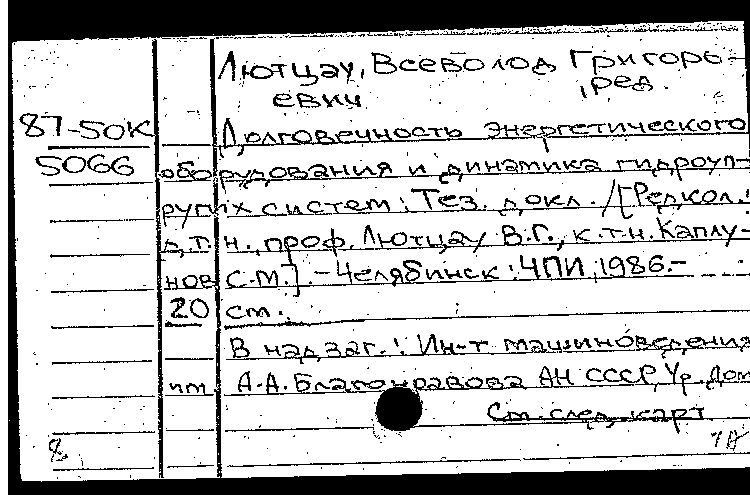 Лютцау, Всеволод Григорь-
евич, ред.
87-50К
Долговечность энергетического
5066
оборудования и динамика гидроуп-
ругих систем: Тез. докл. /[Редкол.:
д.т.н., проф. Лютцау В.Г., к.т.н. Каплу-
нов С.М.]. - Челябинск: ЧПИ, 1986.-
20 см.
В надзаг.: Ин-т машиноведения
им. А.А. Благонравова АН СССР, Ур. Дом
См. след. карт.
8